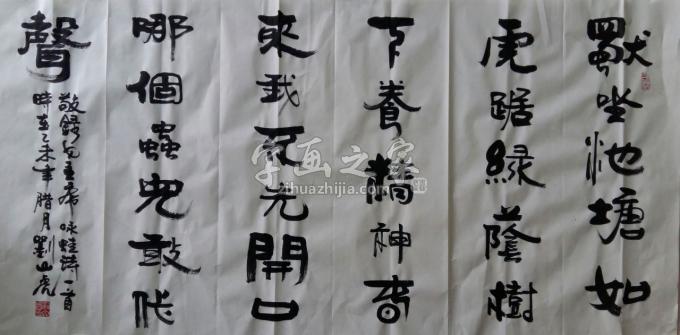 獨坐池塘如
虎踞綠蔭樹
下養精神春
來我不先開口
哪個蟲兒敢作
聲
敬録毛主席咏蛙詩一首
時在乙未年腊月劉山虎
字画之家
zihuazhijia.com